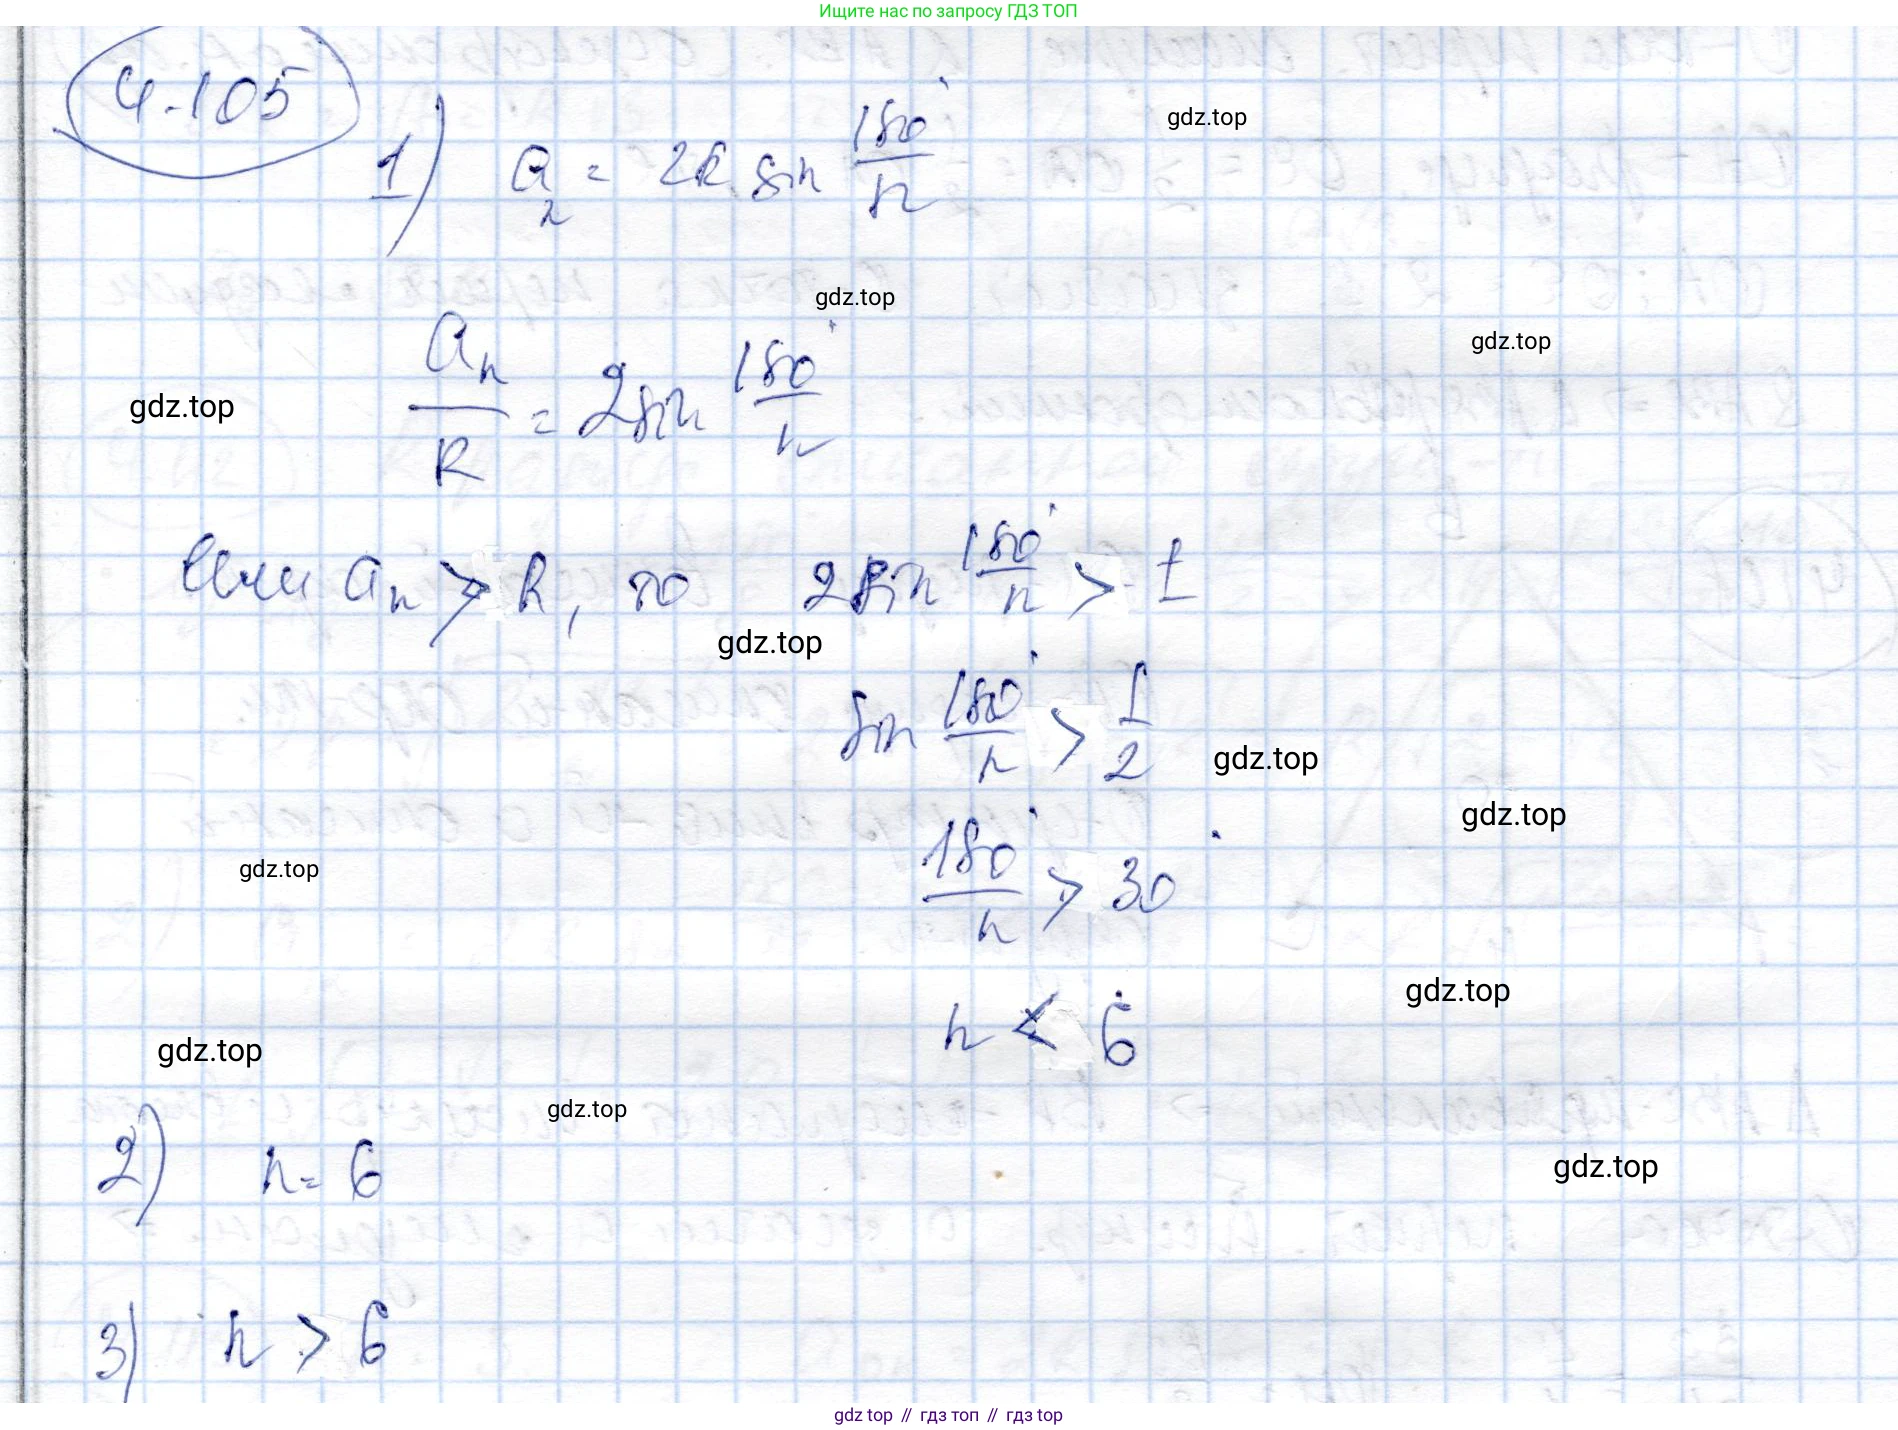 Ищите нас по запросу ГДЗ ТОП
4.105
1) a_n = 2R sin 180°/n
gdz.top
gdz.top
a_n/R = 2 sin 180°/n
gdz.top
gdz.top
Если a_n > R, то 2 sin 180°/n > 1
gdz.top
sin 180°/n > 1/2
gdz.top
gdz.top
180°/n > 30°
gdz.top
gdz.top
n < 6
gdz.top
gdz.top
2) n = 6
gdz.top
3) n > 6
gdz top // гдз топ // гдз top